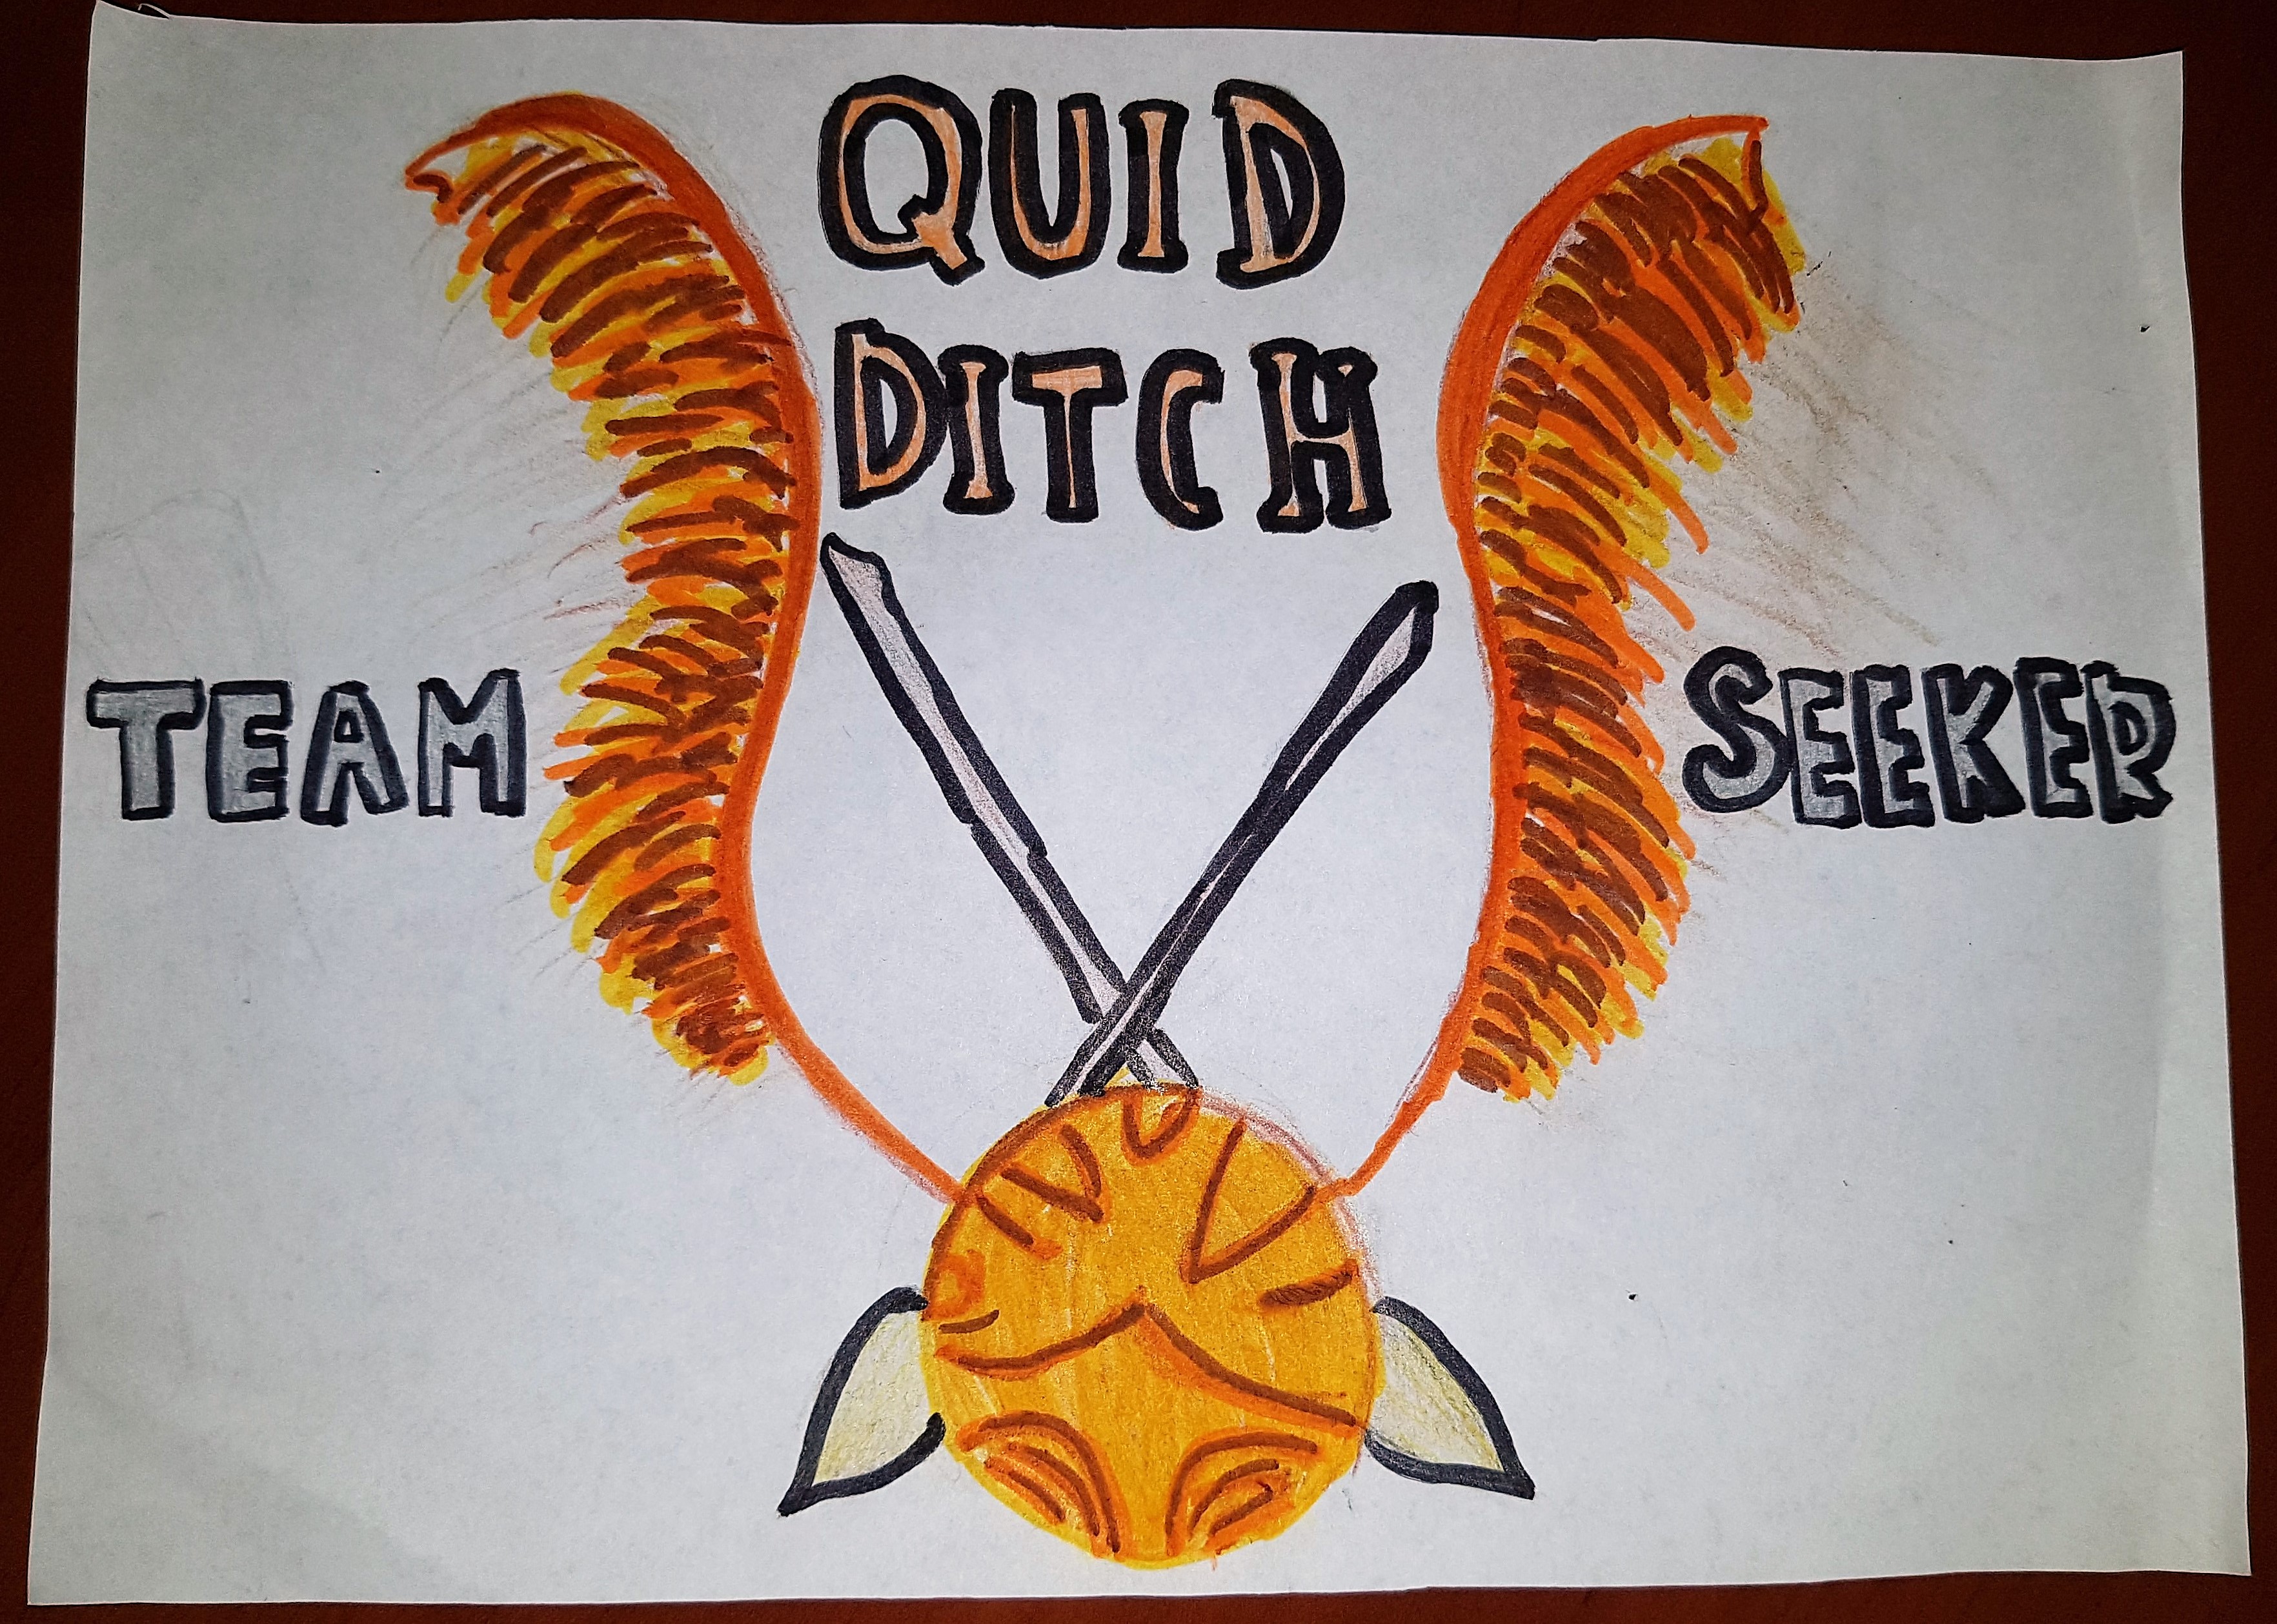 QUID
DITCH
TEAM
SEEKER